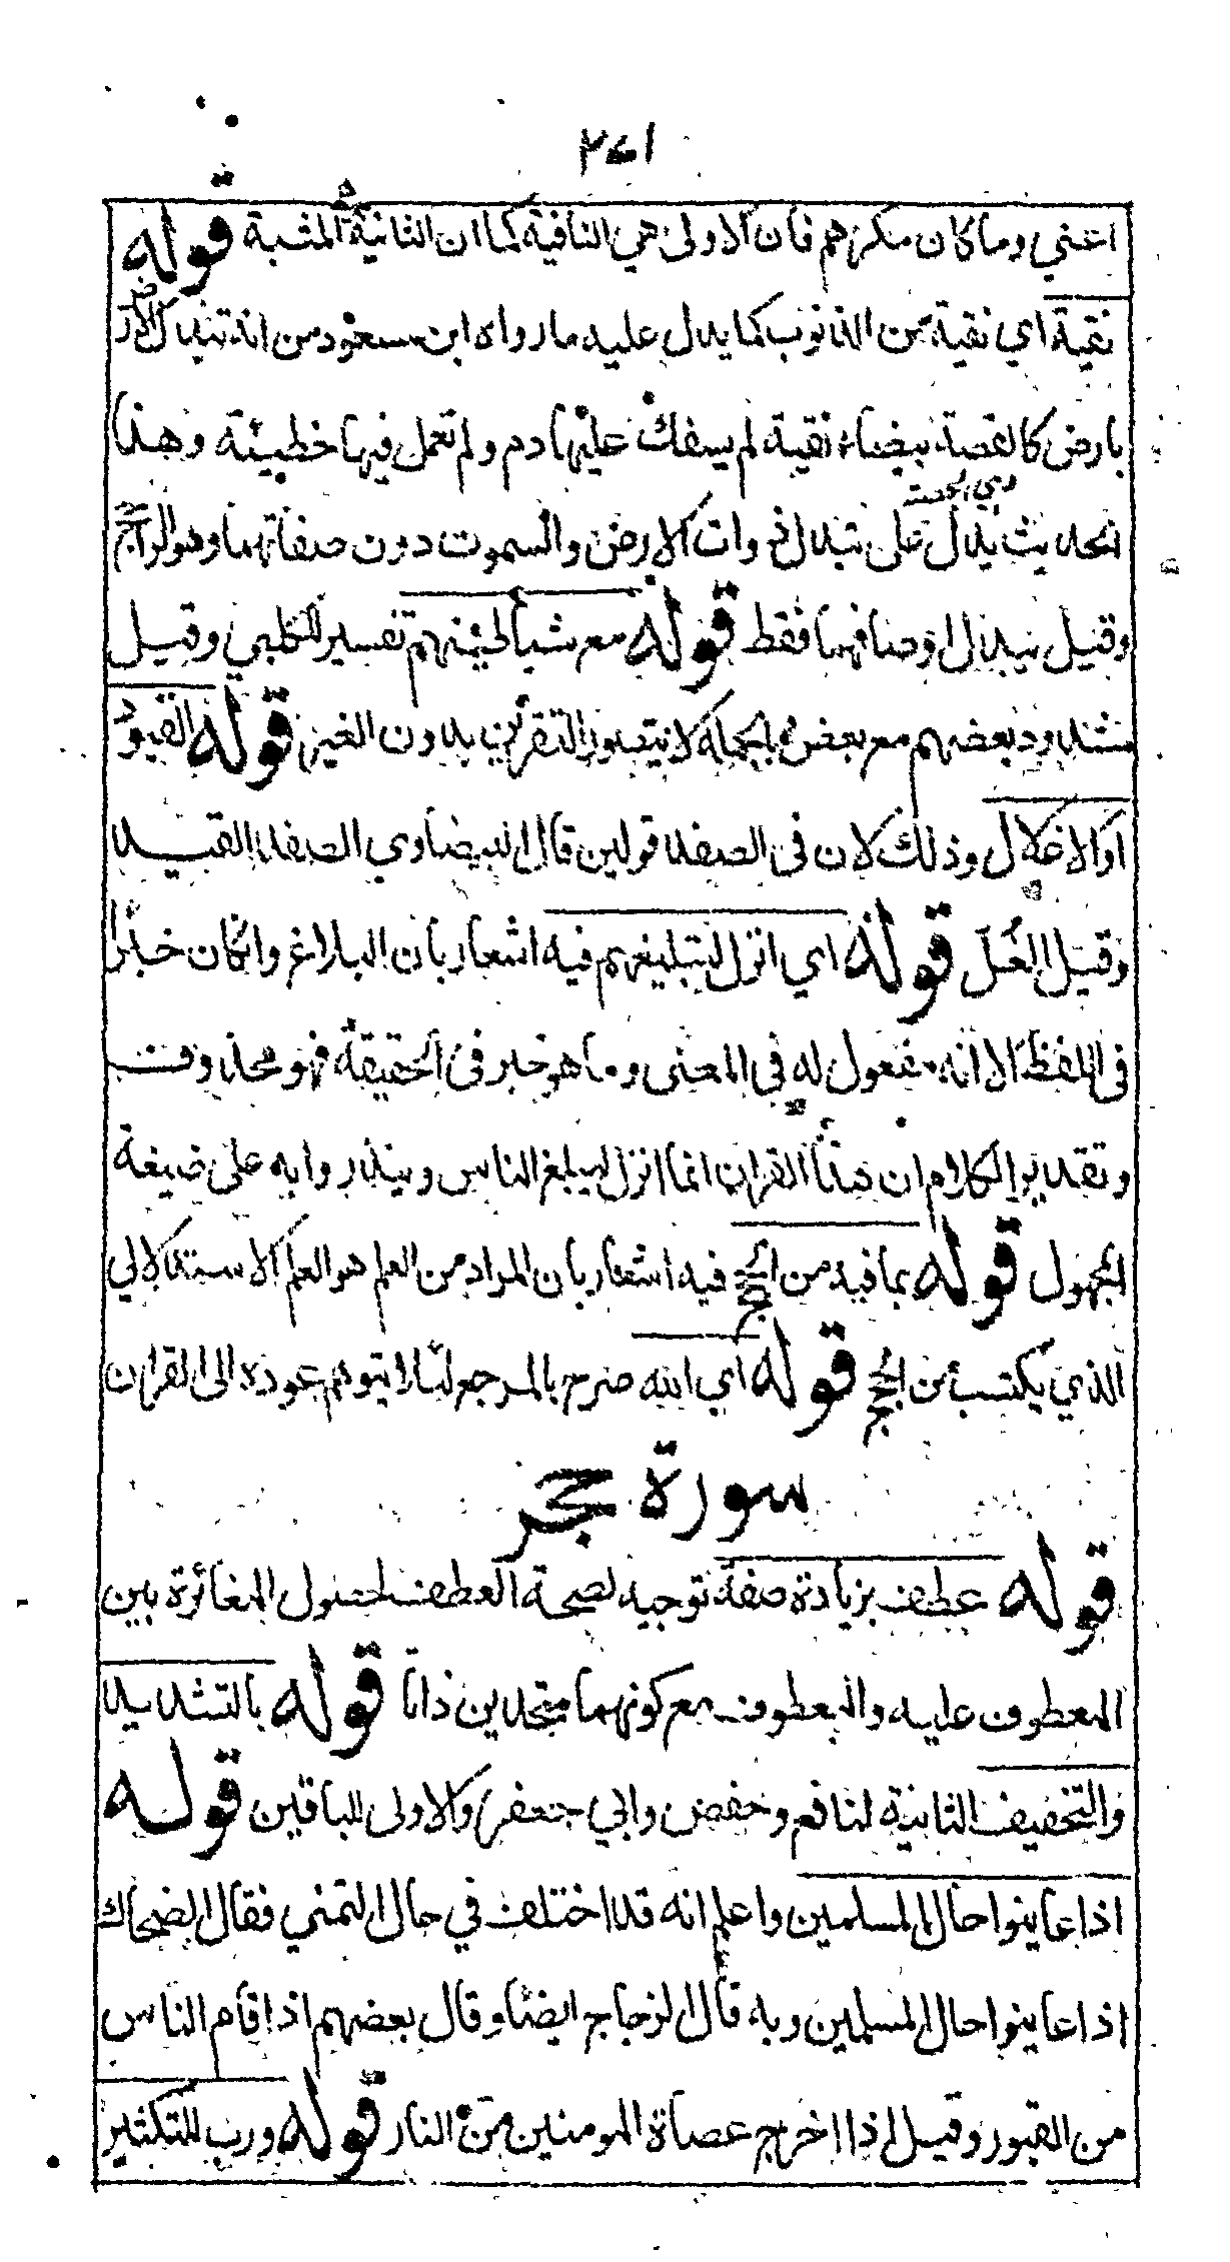 ٢٤١
اعني وما كان مكرهم فان الاولى هي النافية كما ان الثانية هي المثبتة قوله
نقية اي نقية من الذنوب كما يدل عليه ما رواه ابن مسعود من انه تبدل الارض
بارض كالفضة بيضاء نقية لم يسفك عليها دم ولم تعمل فيها خطيئة وهذا
الحديث يدل على تبدل ذوات الارض والسموت دون صفاتهما وهو الراجح
وقيل تبدل اوصافهما فقط قوله مع شياطينهم تفسير للكلبي وقيل
مشدود بعضهم مع بعض وبالجملة لا يتصور التقرين بدون الغير قوله القيود
او الاغلال وذلك لان فى الصفد قولين قال البيضاوي الصفد القيد
وقيل الغل قوله اي انزل لتبليغهم فيه اشعار بان البلاغ وانكان خبرا
فى اللفظ الا انه مفعول له في المعنى وما هو خبر فى الحقيقة فهو محذوف
وتقدير الكلام ان هذا القران انما انزل ليبلغ الناس وينذروا به على صيغة
المجهول قوله بما فيه من الحجج فيه اشعار بان المراد من العلم هو العلم الاستدلالي
الذي يكتسب من الحجج قوله اي الله صرح بالمرجع لئلا يتوهم عوده الى القران
سورة حجر
قوله عطف بزيادة صفة توجيه لصحة العطف لحصول المغائرة بين
المعطوف عليه والمعطوف مع كونهما متحدين ذاتا قوله بالتشديد
والتخفيف الثانية لنافع وحفص وابي جعفر والاولى للباقين قوله
اذا عاينوا حال المسلمين واعلم انه قد اختلف في حال التمني فقال الضحاك
اذا عاينوا حال المسلمين وبه قال الزجاج ايضا وقال بعضهم اذا قام الناس
من القبور وقيل اذا اخرج عصاة المومنين من النار قوله ورب للتكثير